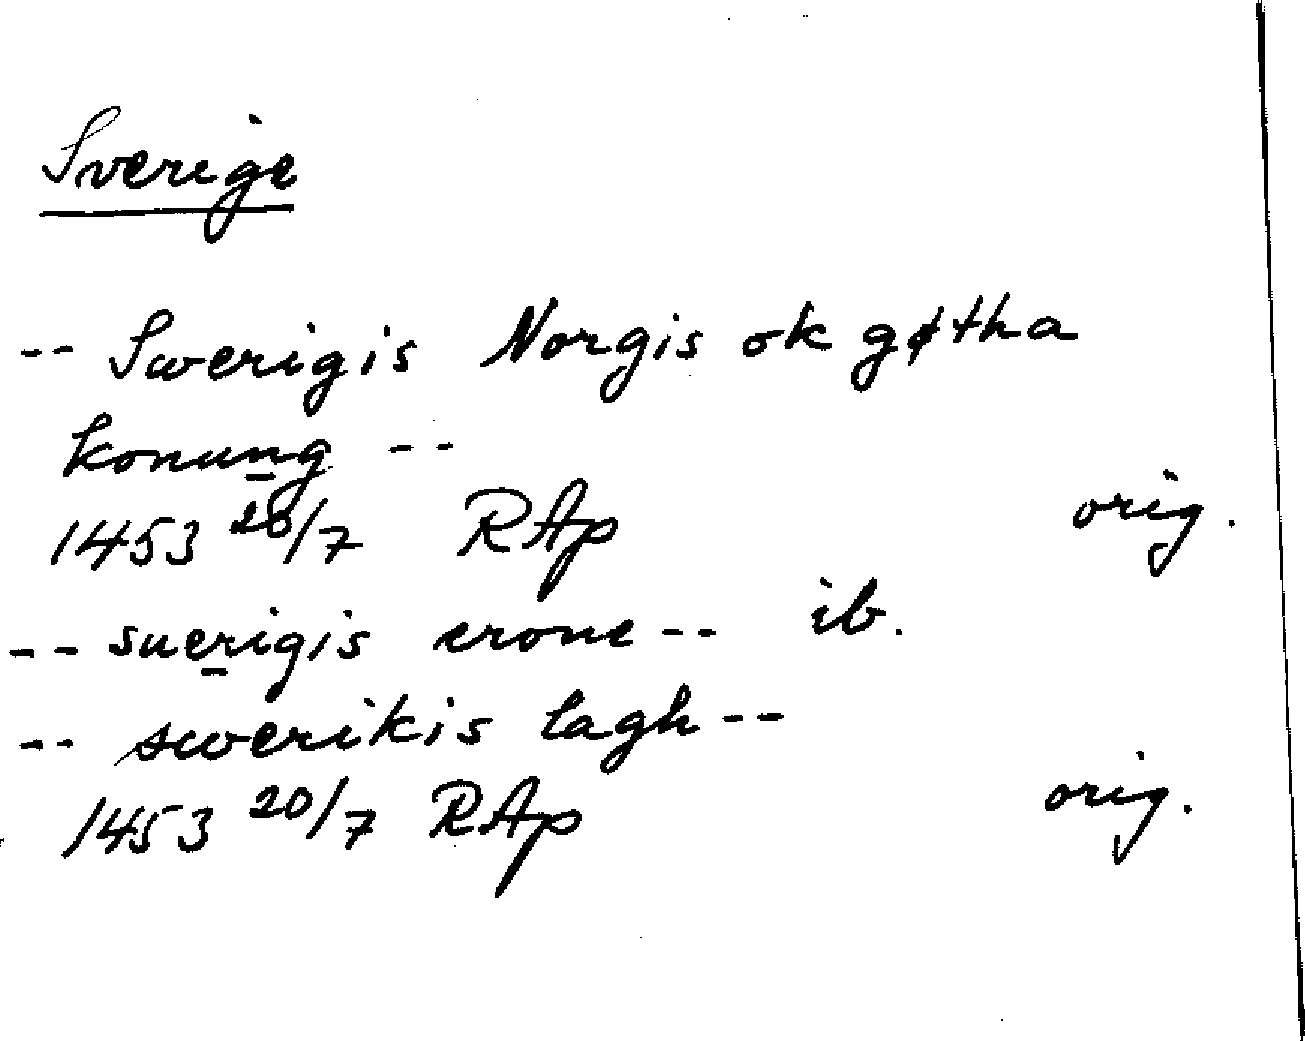 Sverige
-- Swerigis Norgis ok gøtha
konung --
1453 20/7 RAp orig.
-- suerigis crone -- ib.
-- swerikis lagh --
1453 20/7 RAp orig.